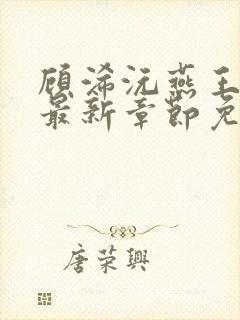 顾浠沅燕王
最新章节免
唐荣興